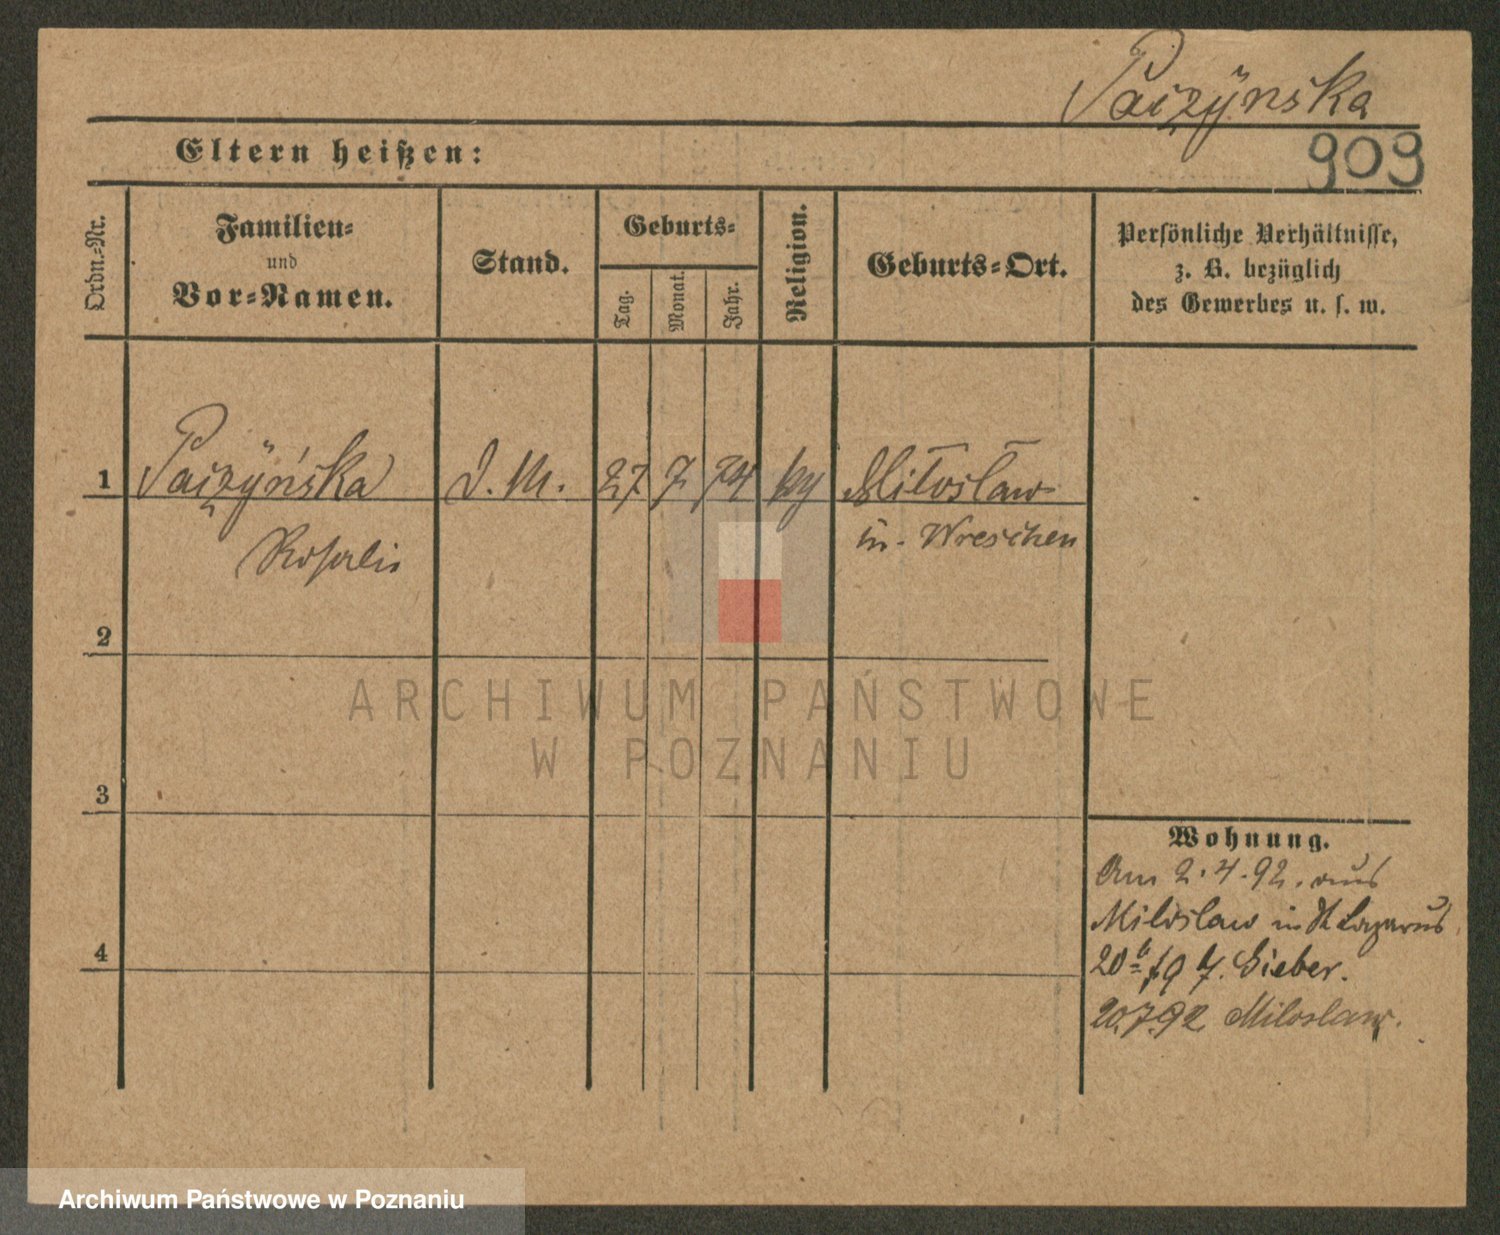 Paczÿnska
909
Eltern heißen:
Ordn.-Nr.
Familien-
und
Vor-Namen.
Stand.
Geburts-
Tag.
Monat.
Jahr.
Religion.
Geburts-Ort.
Persönliche Verhältnisse,
z. B. bezüglich
des Gewerbes u. s. w.
1 Paczÿńska D. M. 27 7 74 Miłosław
in Wreschen
2
ARCHIWUM PAŃSTWOWE
W POZNANIU
3
4
Wohnung.
Am 2.4.92. aus
Miloslaw in St Lazarus
20 Gieber.
20.7.92 Miloslaw.
Archiwum Państwowe w Poznaniu